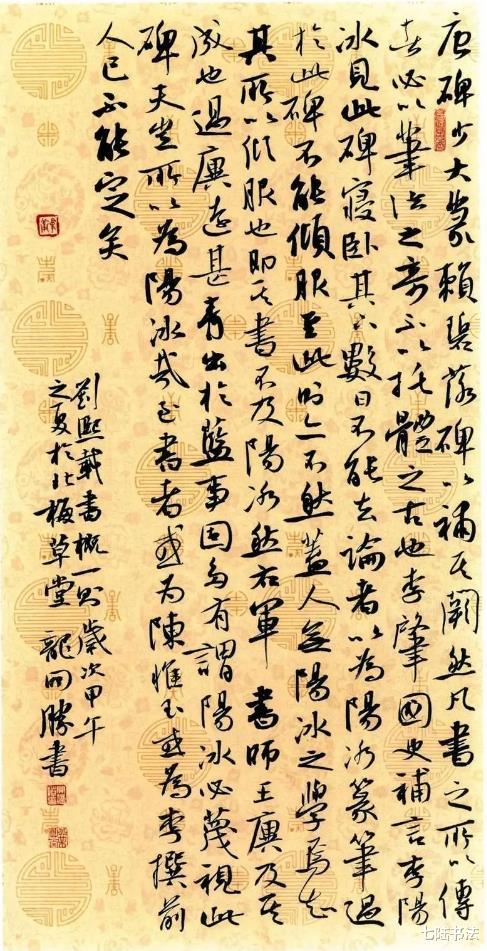 唐碑少大篆賴碧落碑以補其闕然凡書之所以傳
者必以筆法之奇不以托體之古也李肇國史補言李陽
冰見此碑寢卧其下數日不能去論者以為陽冰篆筆過
於此碑不能傾服至此則亦不然蓋人無陽冰之學焉知
其所以傾服也即其書不及陽冰然右軍書師王廙及其
成也過廙遠甚青出於藍事固多有謂陽冰必蔑視此
碑夫豈所以為陽冰哉至書者或為陳惟玉或為李撰前
人已不能定之矣
劉熙載書概一則歲次甲午
之夏於北梅草堂 龍開勝書
七陆书法